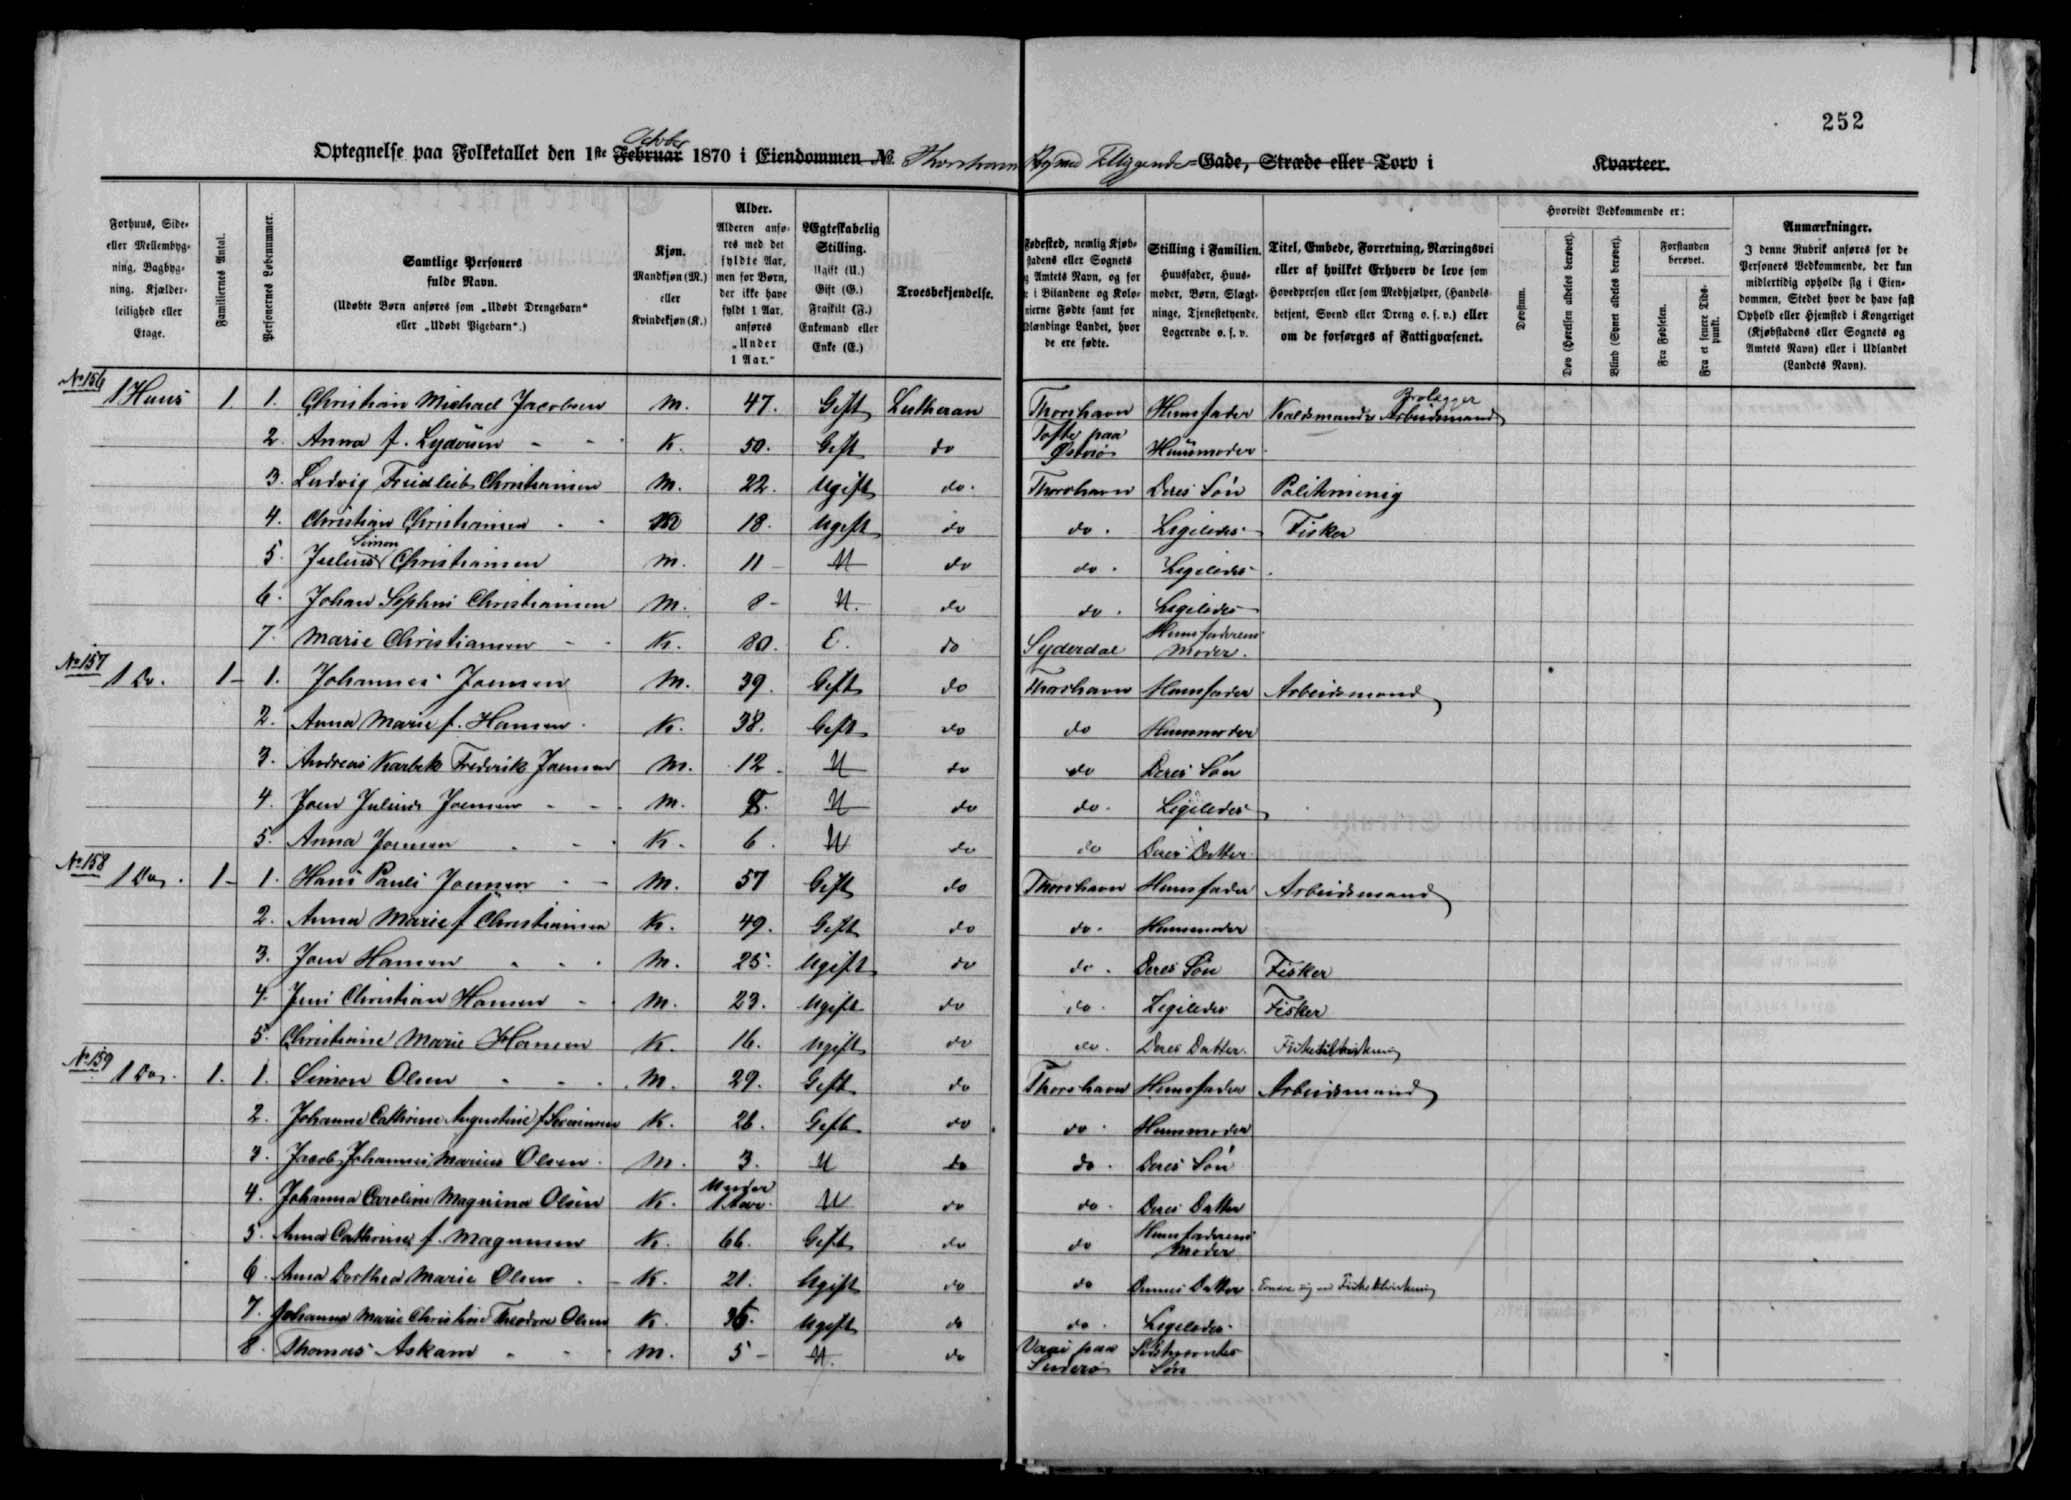 252
October
Optegnelse paa Folketallet den 1ste Februar 1870 i Eiendommen No. Thorshavn Bymed Tilliggende Gade, Stræde eller Torv i Kvarteer.
Forhuus, Side- eller Mellembyg- ning, Bagbyg- ning, Kjælder- leilighed eller Etage.
Familiernes Antal.
Personernes Løbenummer.
Samtlige Personers fulde Navn. (Udøbte Børn anføres som „Udøbt Drengebarn“ eller „Udøbt Pigebarn“.)
Kjøn. Mandkjøn (M.) eller Kvindekjøn (K.)
Alder. Alderen anfø- res med det fyldte Aar, men for Børn, der ikke have fyldt 1 Aar, anføres „Under 1 Aar.“
Ægteskabelig Stilling. Ugift (U.) Gift (G.) Fraskilt (F.) Enkemand eller Enke (E.)
Troesbekjendelse.
Fødested, nemlig Kjøb- stadens eller Sognets og Amtets Navn, og for i Bilandene og Kolo- nierne Fødte samt for Udlændinge Landet, hvor de ere fødte.
Stilling i Familien. Huusfader, Huus- moder, Børn, Slægt- ninge, Tjenestetyende, Logerende o. s. v.
Titel, Embede, Forretning, Næringsvei eller af hvilket Erhverv de leve som Hovedperson eller som Medhjælper, (Handels- betjent, Svend eller Dreng o. s. v.) eller om de forsørges af Fattigvæsenet.
Hvorvidt Vedkommende er:
Døvstum.
Døv (Hørelsen aldeles berøvet).
Blind (Synet aldeles berøvet).
Forstanden berøvet.
Fra Fødselen.
Fra et senere Tids- punkt.
Anmærkninger. I denne Rubrik anføres for de Personers Vedkommende, der kun midlertidig opholde sig i Eien- dommen, Stedet hvor de have fast Ophold eller Hjemsted i Kongeriget (Kjøbstadens eller Sognets og Amtets Navn) eller i Udlandet (Landets Navn).
No 156
1 Huus 1. 1. Christian Michael Jacobsen M. 47. Gift Lutheran Thorshavn Huusfader Arbeidsmand
2. Anna f. Lydersen - - K. 50. Gift do Tofte paa Østerø Huusmoder
3. Ludvig Fridleib Christiansen M. 22. Ugift do. Thorshavn Deres Søn
4. Christian Christiansen - - M 18. Ugift do do. Ligeledes Fisker
5. Julius Simon Christiansen M. 11 - U do do. Ligeledes
6. Johan Sophus Christiansen M. 8 - U. do do. Ligeledes
7. Marie Christiansen - - K. 80. E. do Syderdal Huusfaderens Moder.
No 157
1 Do. 1 - 1. Johannes Joensen M. 39. Gift do Thorshavn Huusfader Arbeidsmand
2. Anna Marie f. Hansen K. 38. Gift do do Huusmoder
3. Andreas Karbek Frederik Joensen M. 12 - U do do Deres Søn
4. Joen Julius Joensen - - M. 8. U do do. Ligeledes
5. Anna Joensen K. 6. U do do Deres Datter
No 158
1 Do. 1 - 1. Hans Pauli Joensen - - M. 57 Gift do Thorshavn Huusfader Arbeidsmand
2. Anna Marie f Christiansen K. 49. Gift do do. Huusmoder
3. Joen Hansen M. 25. Ugift do do. Deres Søn Fisker
4. Jens Christian Hansen - M. 23. Ugift do do. Ligeledes Fisker
5. Christiane Marie Hansen K. 16. Ugift do do. Deres Datter. Fisketilvirkning
No 159
1 Do. 1. 1. Simon Olsen - - M. 29. Gift do Thorshavn Huusfader Arbeidsmand
2. Johanne Cathrine Augustine f K. 26. Gift do do. Huusmoder
3. Jacob Johannes Marius Olsen M. 3. U do do. Deres Søn
4. Johanna Caroline Magnina Olsen K. Under 1 Aar. U do do. Deres Datter
5. Anna Cathrine f. Magnussen K. 66. Gift do do Huusfaderens Moder
6. Anna Dorthea Marie Olsen - K. 21. Ugift do do Dennes Datter Fisketilvirkning
7. Johanna Marie Christine Theodore Olsen K. Ugift do do. Ligeledes
8. Thomas Askam - - M. 5 - U. do Vaagi paa Suderø Søn